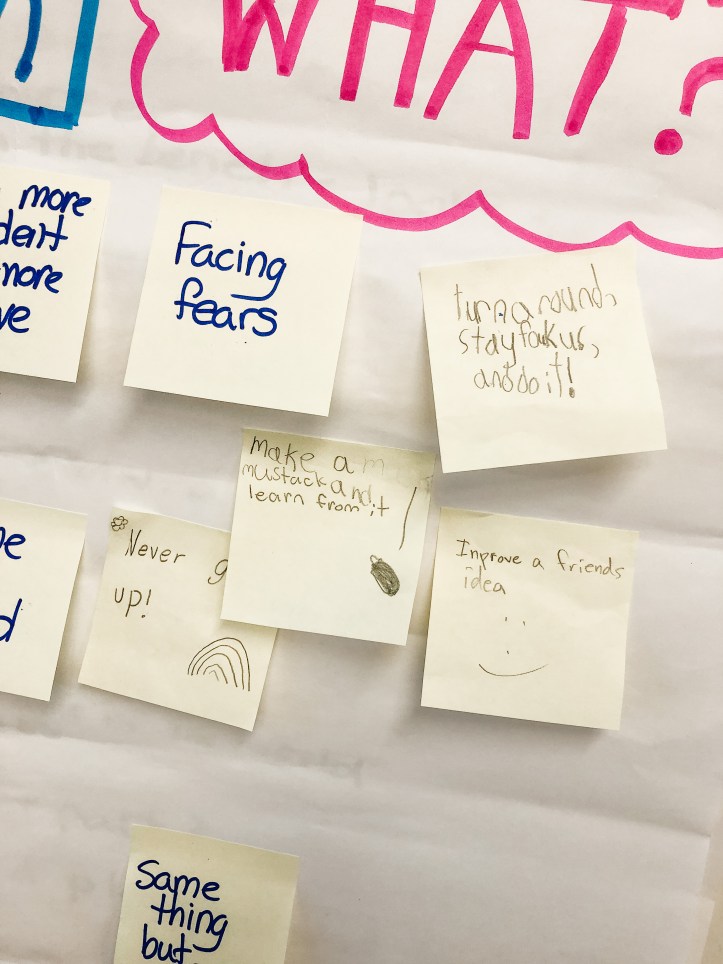 WHAT?
more
more
Facing
fears
turnaround,
stayfokus,
anddoit!
make a m
mustackand
learn from it
Never g
up!
Inprove a friends
idea
Same
thing
but